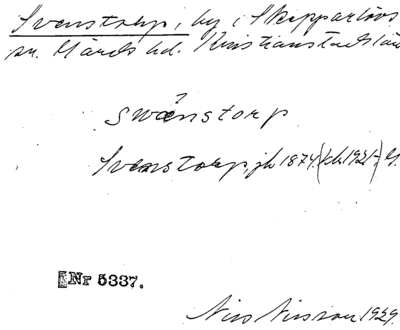 Svenstorp, by i Skepparlövs
sn. Gärds hd. Kristianstads län
swänstorp
Svenstorp, jk 1874 (kk 1921-) G.
Nr 5337.
Nils Nilsson 1929.